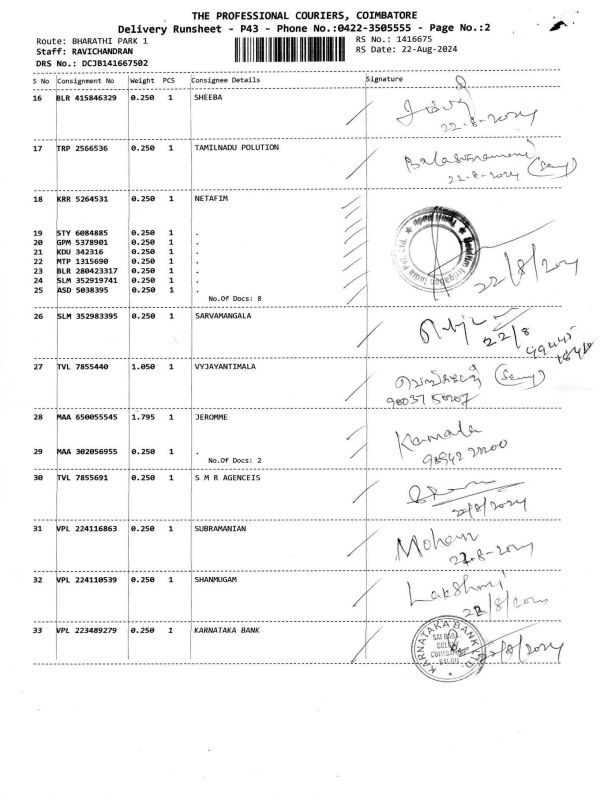 THE PROFESSIONAL COURIERS, COIMBATORE
Delivery Runsheet - P43 - Phone No.:0422-3505555 - Page No.:2
Route: BHARATHI PARK 1 RS No.: 1416675
Staff: RAVICHANDRAN RS Date: 22-Aug-2024
DRS No.: DCJB141667502
S No Consignment No Weight PCS Consignee Details Signature
16 BLR 415846329 0.250 1 SHEEBA
22-8-2024
17 TRP 2566536 0.250 1 TAMILNADU POLUTION
22-8-2024
18 KRR 5264531 0.250 1 NETAFIM
19 STY 6084885 0.250 1 .
20 GPM 5378901 0.250 1 .
21 KDU 342316 0.250 1 .
22 MTP 1315690 0.250 1 .
23 BLR 280423317 0.250 1 .
24 SLM 352919741 0.250 1 .
25 ASD 5038395 0.250 1 .
No.Of Docs: 8
22/8/2024
26 SLM 352983395 0.250 1 SARVAMANGALA
22/8
27 TVL 7855440 1.050 1 VYJAYANTIMALA
28 MAA 650055545 1.795 1 JEROMME
Kamala
29 MAA 302056955 0.250 1 .
No.Of Docs: 2
30 TVL 7855691 0.250 1 S M R AGENCEIS
22/8/2024
31 VPL 224116863 0.250 1 SUBRAMANIAN
Mohan
22-8-2024
32 VPL 224110539 0.250 1 SHANMUGAM
Lakshmi
22/8/2024
33 VPL 223489279 0.250 1 KARNATAKA BANK
KARNATAKA BANK LTD.
22/8/2024